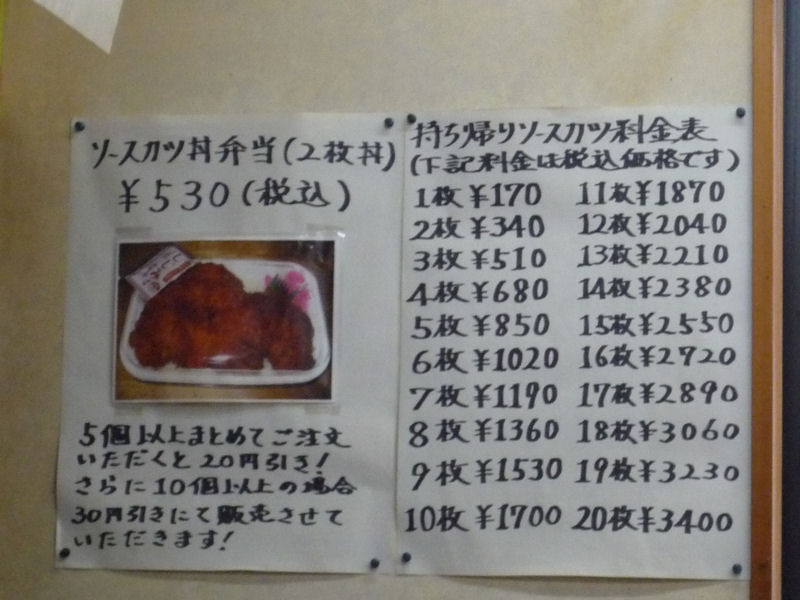 ソースカツ丼弁当(2枚丼)
¥530(税込)
5個以上まとめてご注文
いただくと20円引き!
さらに10個以上の場合
30円引きにて販売させて
いただきます!
持ち帰りソースカツ料金表
(下記料金は税込価格です)
1枚¥170 11枚¥1870
2枚¥340 12枚¥2040
3枚¥510 13枚¥2210
4枚¥680 14枚¥2380
5枚¥850 15枚¥2550
6枚¥1020 16枚¥2720
7枚¥1190 17枚¥2890
8枚¥1360 18枚¥3060
9枚¥1530 19枚¥3230
10枚¥1700 20枚¥3400